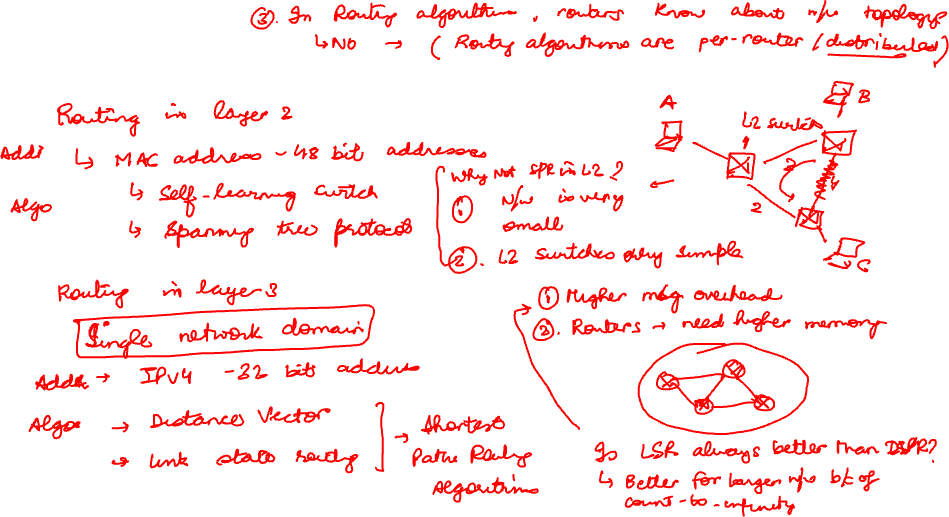 ③. In Routing algorithms, routers know about n/w topology
↳ NO → (Routing algorithms are per-router / distributed)
Routing in layer 2
Addr ↳ MAC address - 48 bit addresses
Algo ↳ Self-learning switch
↳ Spanning tree protocol
Why Not SPR in L2?
① N/w is very
small
②. L2 switches very simple
A
B
L2 switch
3
2
C
Routing in layer 3
Single network domain
Addr → IPv4 - 32 bit address
Algo → Distance Vector
→ Link state routing
→ Shortest
Path Routing
Algorithms
① Higher msg overhead
②. Routers → need higher memory
Is LSR always better than DVR?
↳ Better for larger n/w b/c of
count-to-infinity